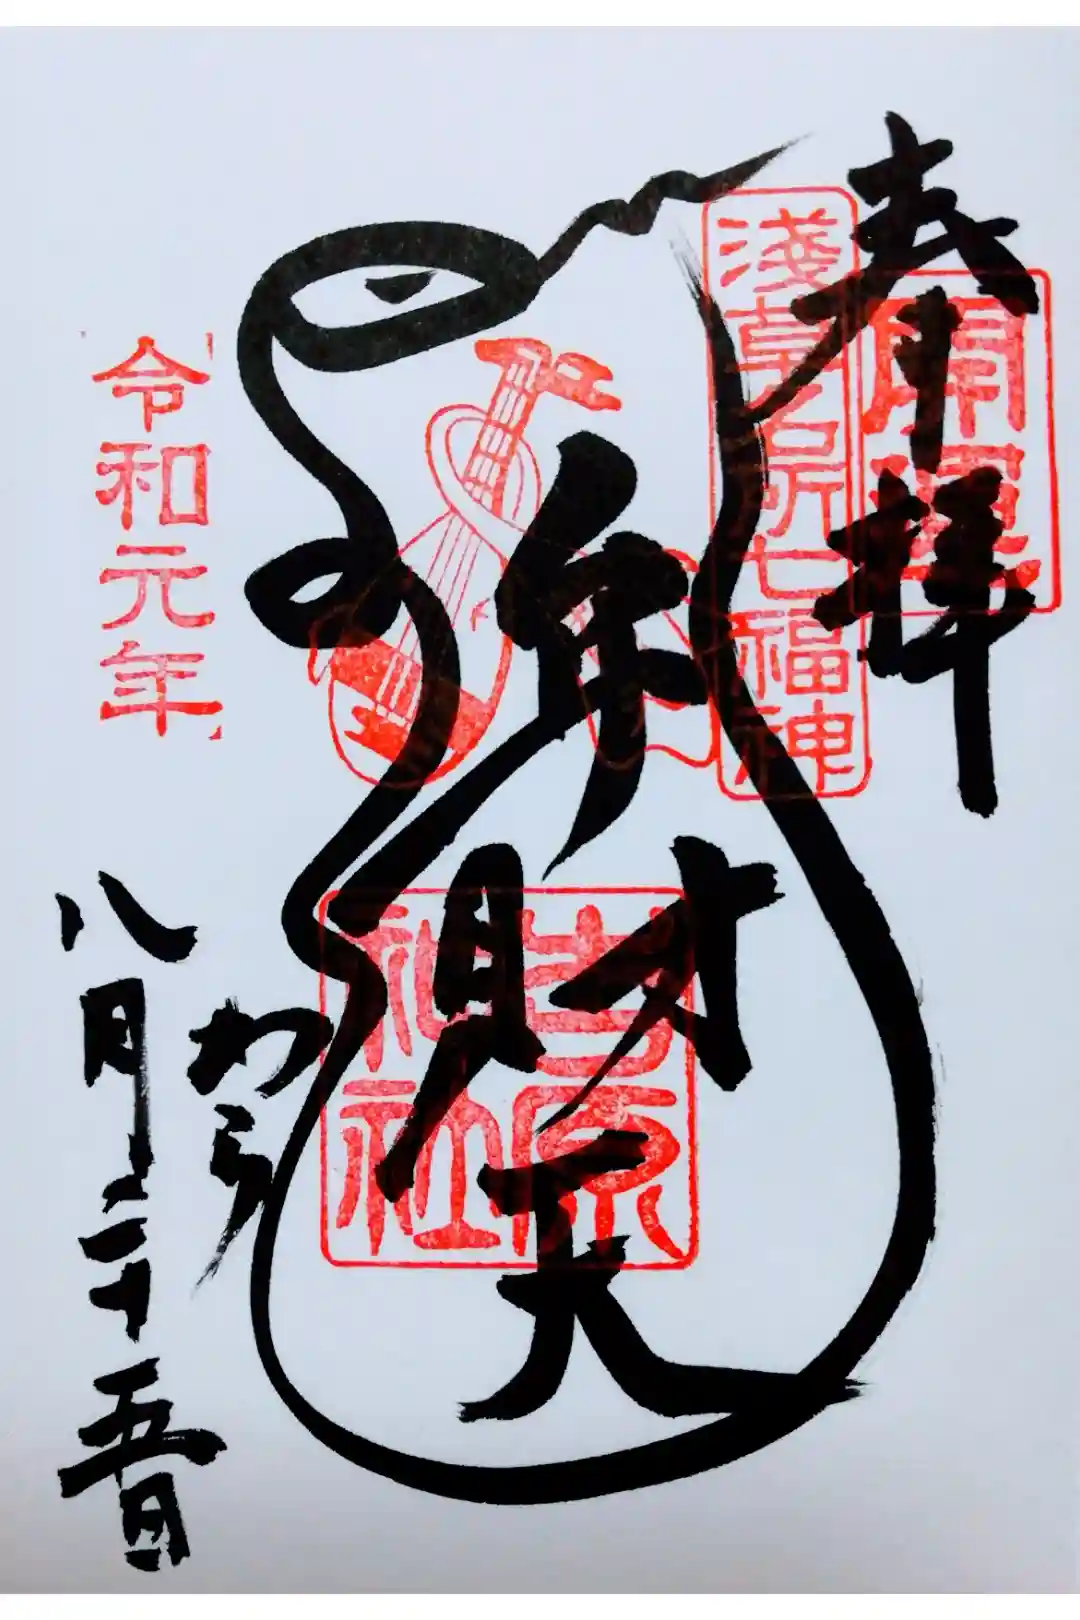 奉拝
開運
淺草名所七福神
弁財天
吉原神社
令和元年
八月二十五日